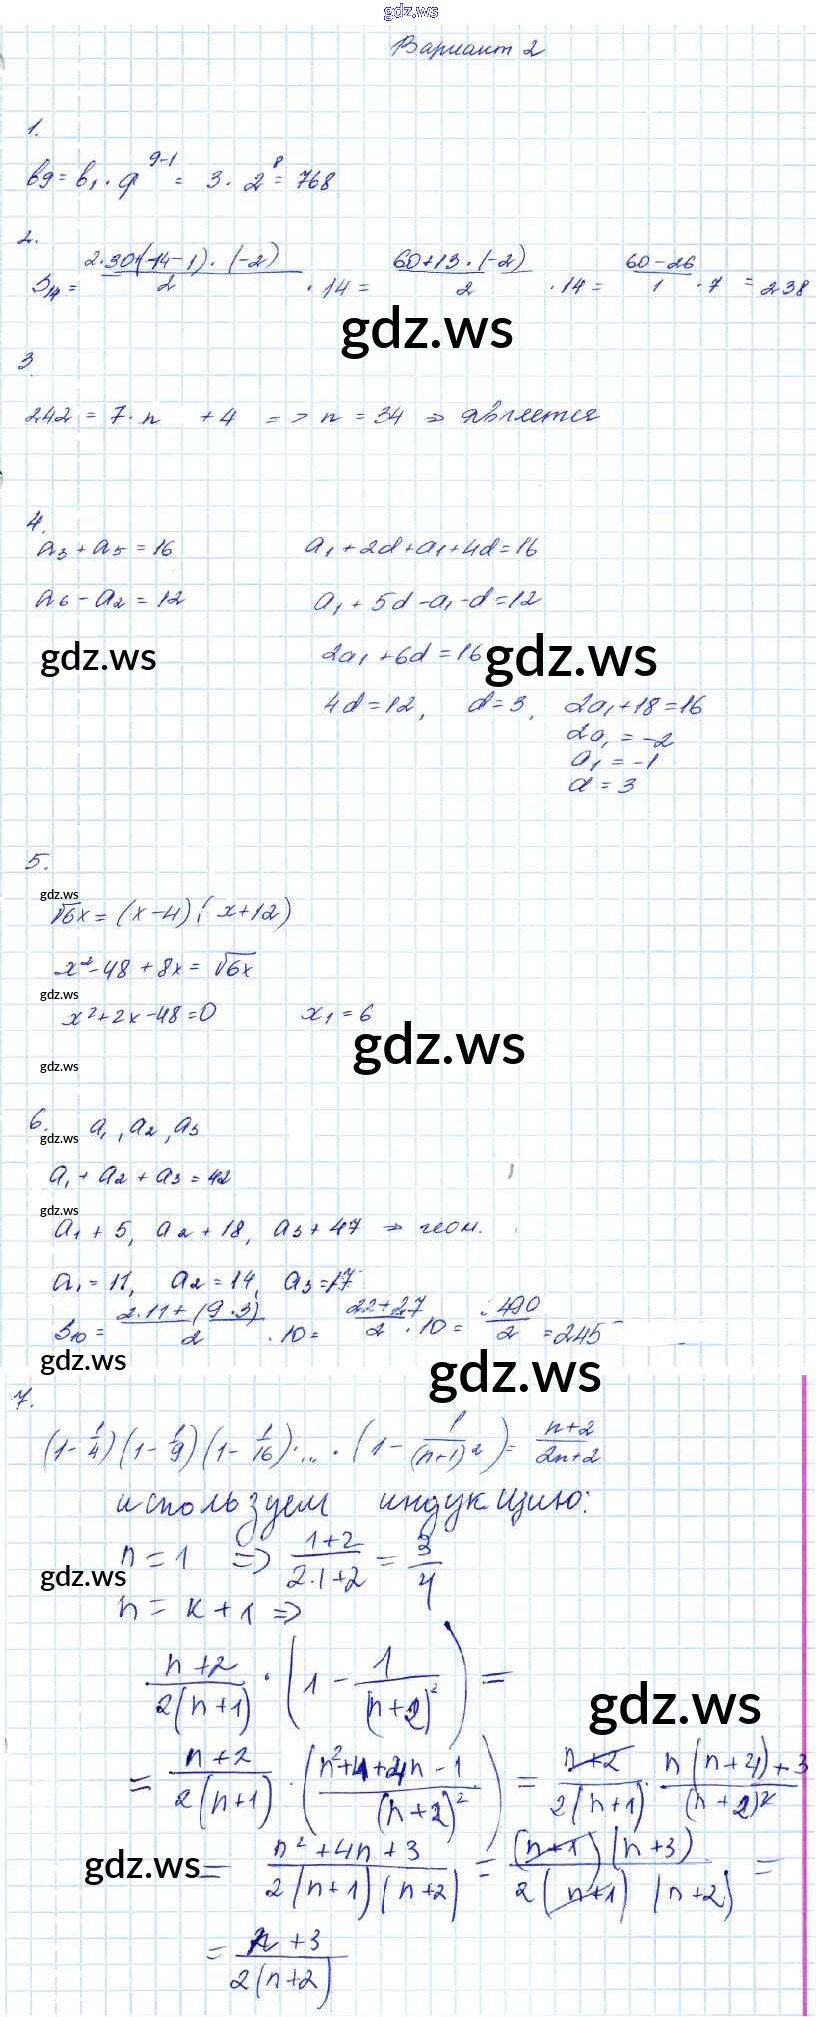 gdz.ws
Вариант 2
1.
b9 = b1 · q^(9-1) = 3 · 2^8 = 768
2.
S14 = (2·30(14-1)·(-2))/2 · 14 = (60+13·(-2))/2 · 14 = (60-26)/1 · 7 = 238
gdz.ws
3
242 = 7·n + 4 => n = 34 => является
4.
a3 + a5 = 16 a1 + 2d + a1 + 4d = 16
a6 - a2 = 12 a1 + 5d - a1 - d = 12
gdz.ws 2a1 + 6d = 16 gdz.ws
4d = 12, d = 3, 2a1 + 18 = 16
2a1 = -2
a1 = -1
d = 3
5.
gdz.ws
√6x = (x-4)(x+12)
x² - 48 + 8x = √6x
gdz.ws
x² + 2x - 48 = 0 x1 = 6
gdz.ws
gdz.ws
6. a1, a2, a3
gdz.ws
a1 + a2 + a3 = 42
gdz.ws
a1 + 5, a2 + 18, a3 + 47 => геом.
a1 = 11, a2 = 14, a3 = 17
S10 = (2·11+(9·3))/2 · 10 = (22+27)/2 · 10 = 490/2 = 245
gdz.ws gdz.ws
7.
(1-1/4)(1-1/9)(1-1/16)·...·(1-1/(n+1)²) = (n+2)/(2n+2)
используем индукцию:
n = 1 => (1+2)/(2·1+2) = 3/4
gdz.ws
n = k + 1 =>
(n+2)/(2(n+1)) · (1 - 1/(n+2)²) =
gdz.ws
= (n+2)/(2(n+1)) · ((n²+4+4n-1)/(n+2)²) = (n+2)/(2(n+1)) · (n(n+4)+3)/(n+2)²
gdz.ws
= (n²+4n+3)/(2(n+1)(n+2)) = ((n+1)(n+3))/(2(n+1)(n+2)) =
= (n+3)/(2(n+2))